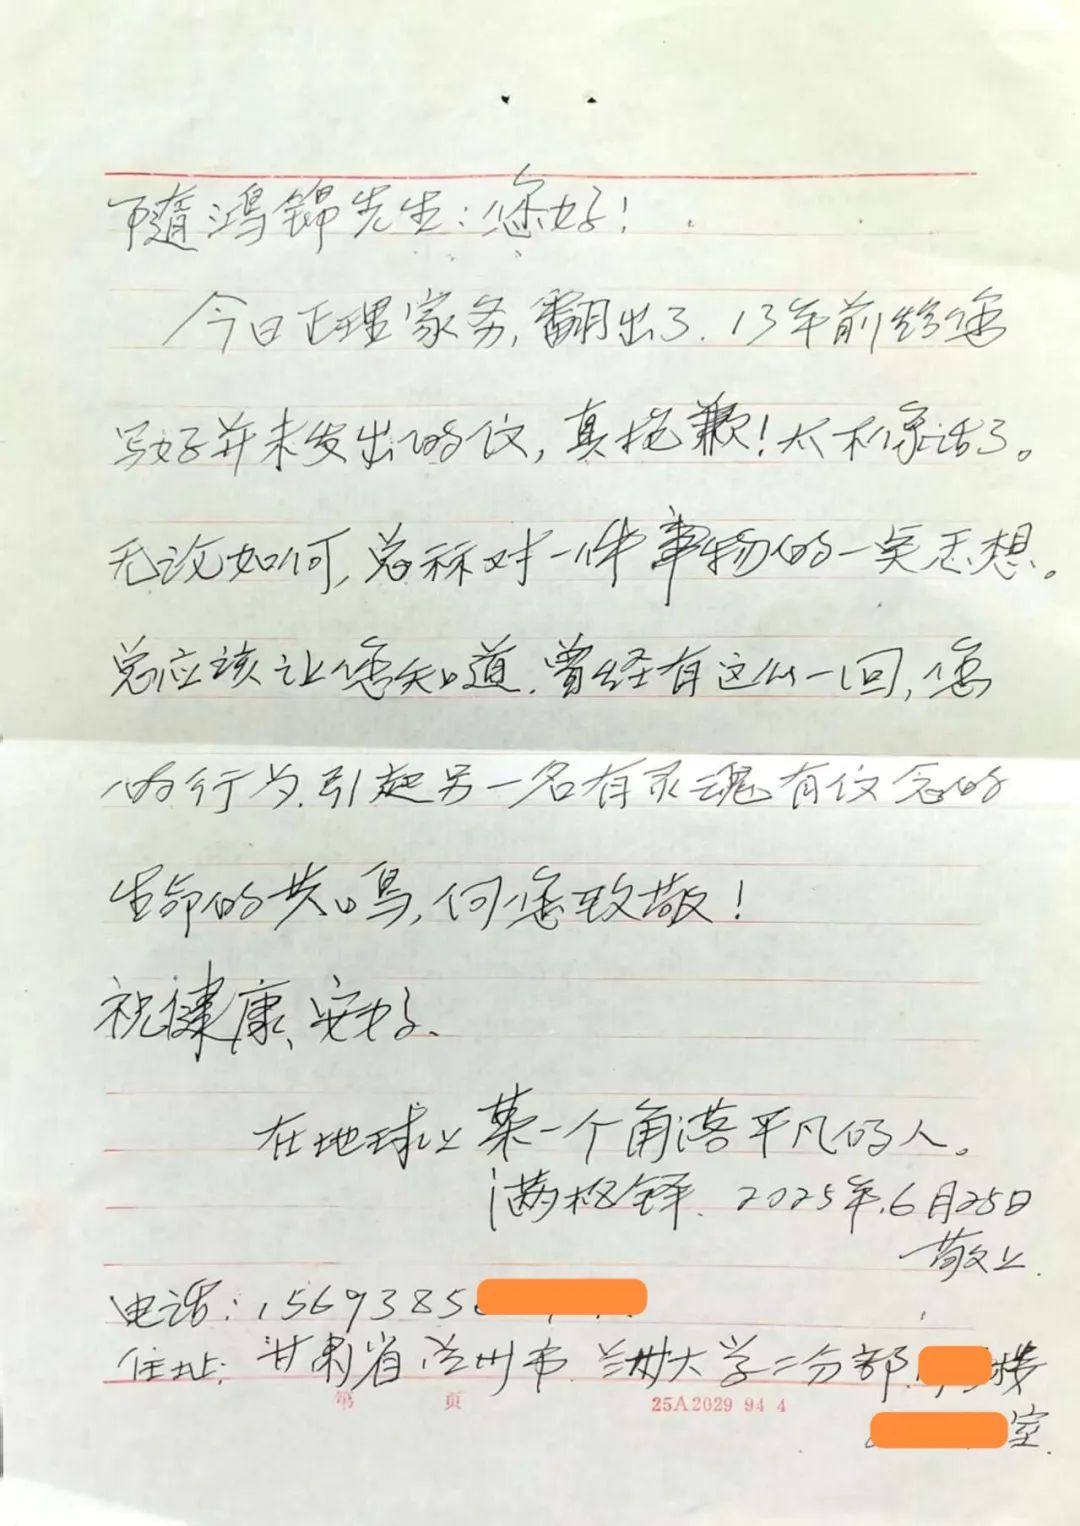 隋鸿锦先生：您好！
今日正理家务，翻出了.13年前给您
写好并未发出的仪，真抱歉！太不象话了。
无论如何，总称对一件事物的一矣思想。
总应该让您知道.曾经有这么一回，您
的行为.引起另一名有灵魂有仪念的
生命的共鸣，向您致敬！
祝健康、安好、
在地球上某一个角落平凡的人。
满枢铎. 2025年.6月25日
敬上.
电话：15693850
住址：甘肃省兰州市.兰州大学二分部.楼
室.
第 页 25A2029 94 4